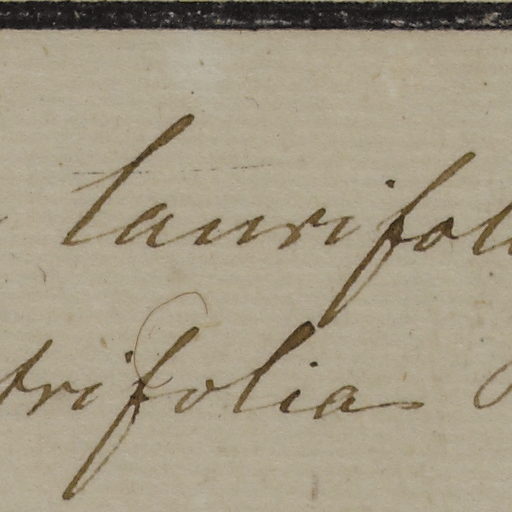 laurifoli
trifolia